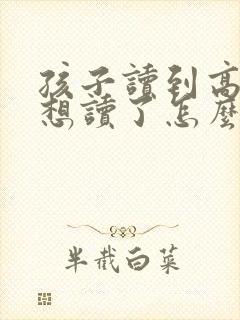 孩子讀到高
想讀了怎麼
半截白菜